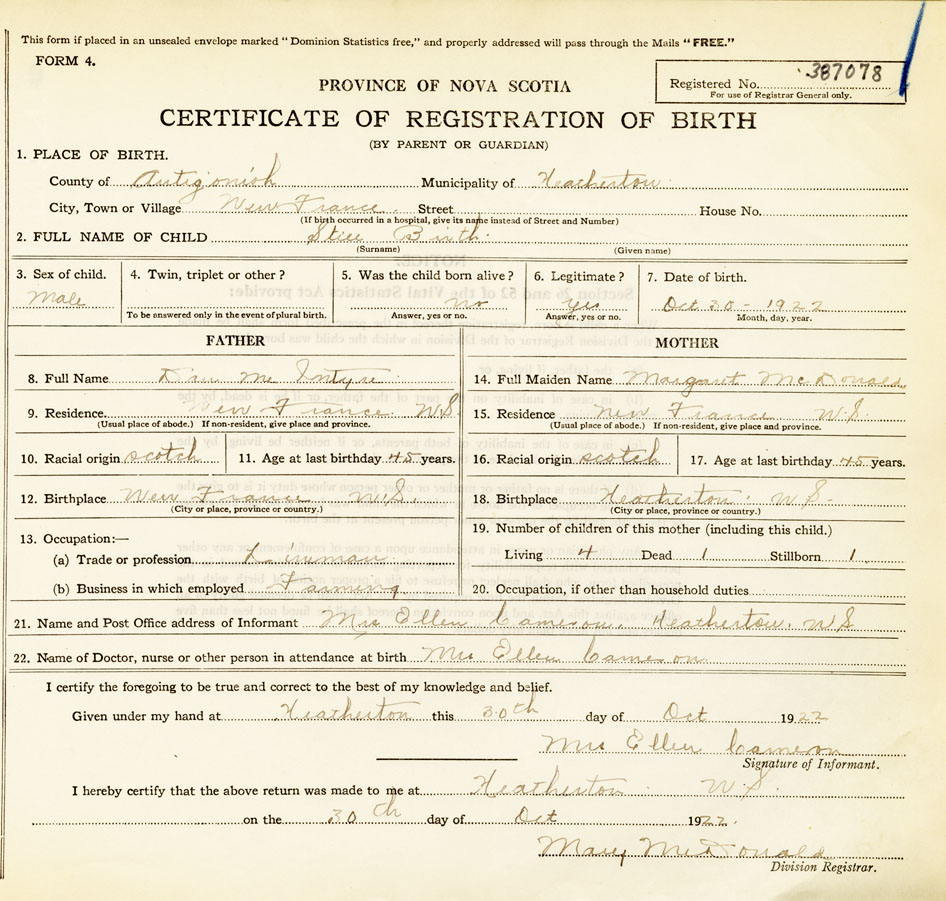 This form if placed in an unsealed envelope marked "Dominion Statistics free," and properly addressed will pass through the Mails "FREE."
FORM 4.
Registered No. 387078
For use of Registrar General only.
PROVINCE OF NOVA SCOTIA
CERTIFICATE OF REGISTRATION OF BIRTH
(BY PARENT OR GUARDIAN)
1. PLACE OF BIRTH.
County of Antigonish Municipality of Heatherton
City, Town or Village New France Street House No.
(If birth occurred in a hospital, give its name instead of Street and Number)
2. FULL NAME OF CHILD Still Birth
(Surname) (Given name)
3. Sex of child. 4. Twin, triplet or other? 5. Was the child born alive? 6. Legitimate? 7. Date of birth.
Male no yes Oct 30 - 1922
To be answered only in the event of plural birth. Answer, yes or no. Answer, yes or no. Month, day, year.
FATHER MOTHER
8. Full Name Dan Mc Intyre 14. Full Maiden Name Margaret McDonald
9. Residence. New France N.S. 15. Residence New France N.S.
(Usual place of abode.) If non-resident, give place and province. (Usual place of abode.) If non-resident, give place and province.
10. Racial origin scotch 11. Age at last birthday 45 years. 16. Racial origin scotch 17. Age at last birthday 45 years.
12. Birthplace New France N.S. 18. Birthplace Heatherton. N.S.
(City or place, province or country.) (City or place, province or country.)
13. Occupation:— 19. Number of children of this mother (including this child.)
(a) Trade or profession Living 4 Dead 1 Stillborn 1
(b) Business in which employed Farming 20. Occupation, if other than household duties
21. Name and Post Office address of Informant Mrs Ellen Cameron, Heatherton, N.S
22. Name of Doctor, nurse or other person in attendance at birth Mrs Ellen Cameron
I certify the foregoing to be true and correct to the best of my knowledge and belief.
Given under my hand at Heatherton this 30th day of Oct 1922
Mrs Ellen Cameron
Signature of Informant.
I hereby certify that the above return was made to me at Heatherton N.S.
on the 30th day of Oct 1922.
Mary McDonald
Division Registrar.